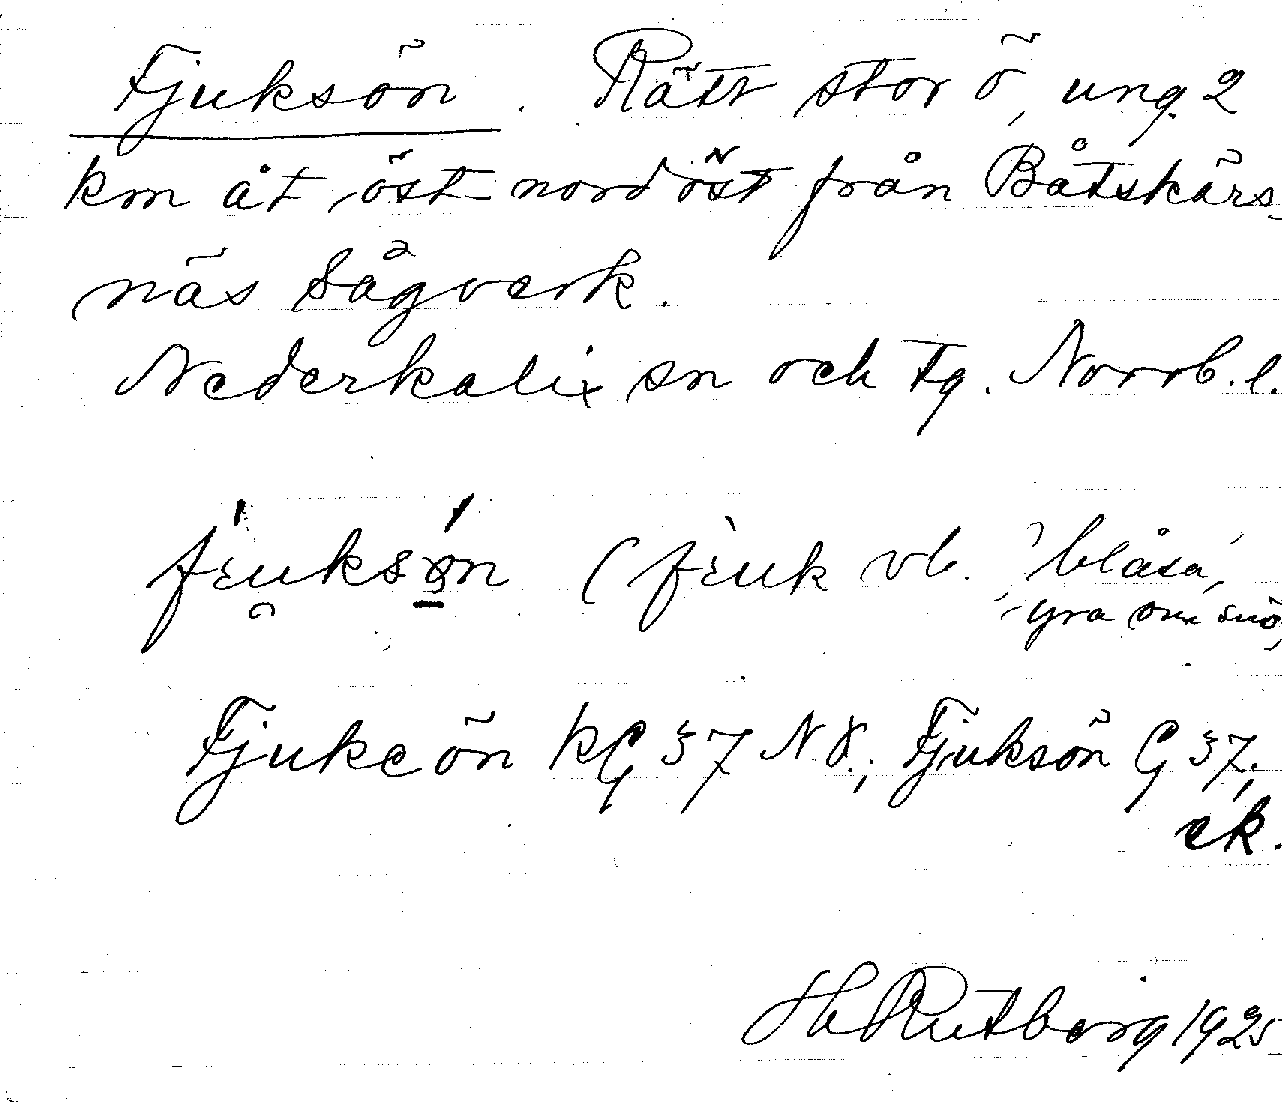 Fjuksön. Rätt stor ö, ung. 2
km åt öst-nordöst från Båtskärs-
näs Sågverk.
Nederkalix sn och tg. Norrb. l.
(vb. 'blåsa,
yra om snö'
Fjukcön KG 37 NO.; Fjuksön G 37;
ek.
H Rutberg 1925